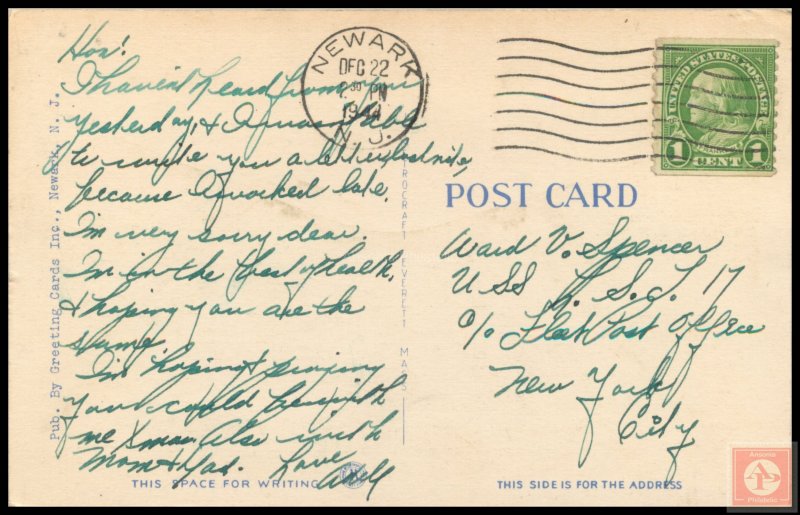 Hon!
I haven't heard from you
yesterday, & I
to write you a letter last nite,
because I worked late.
I'm very sorry dear.
I'm in the best of health,
& hoping you are the
same.
I'm hoping & praying
you could be with
me Xmas. Also with
Mom & Dad. Love
Pub. By Greeting Cards Inc., Newark, N. J.
EVERETT MASS
THIS SPACE FOR WRITING
NEWARK
DEC 22
2 30 PM
N. J.
UNITED STATES POSTAGE
1 CENT 1
POST CARD
Ward V. Spencer
USS L. S. T. 17
c/o Fleet Post Office
New York
City
THIS SIDE IS FOR THE ADDRESS
Ansonia
Philatelic